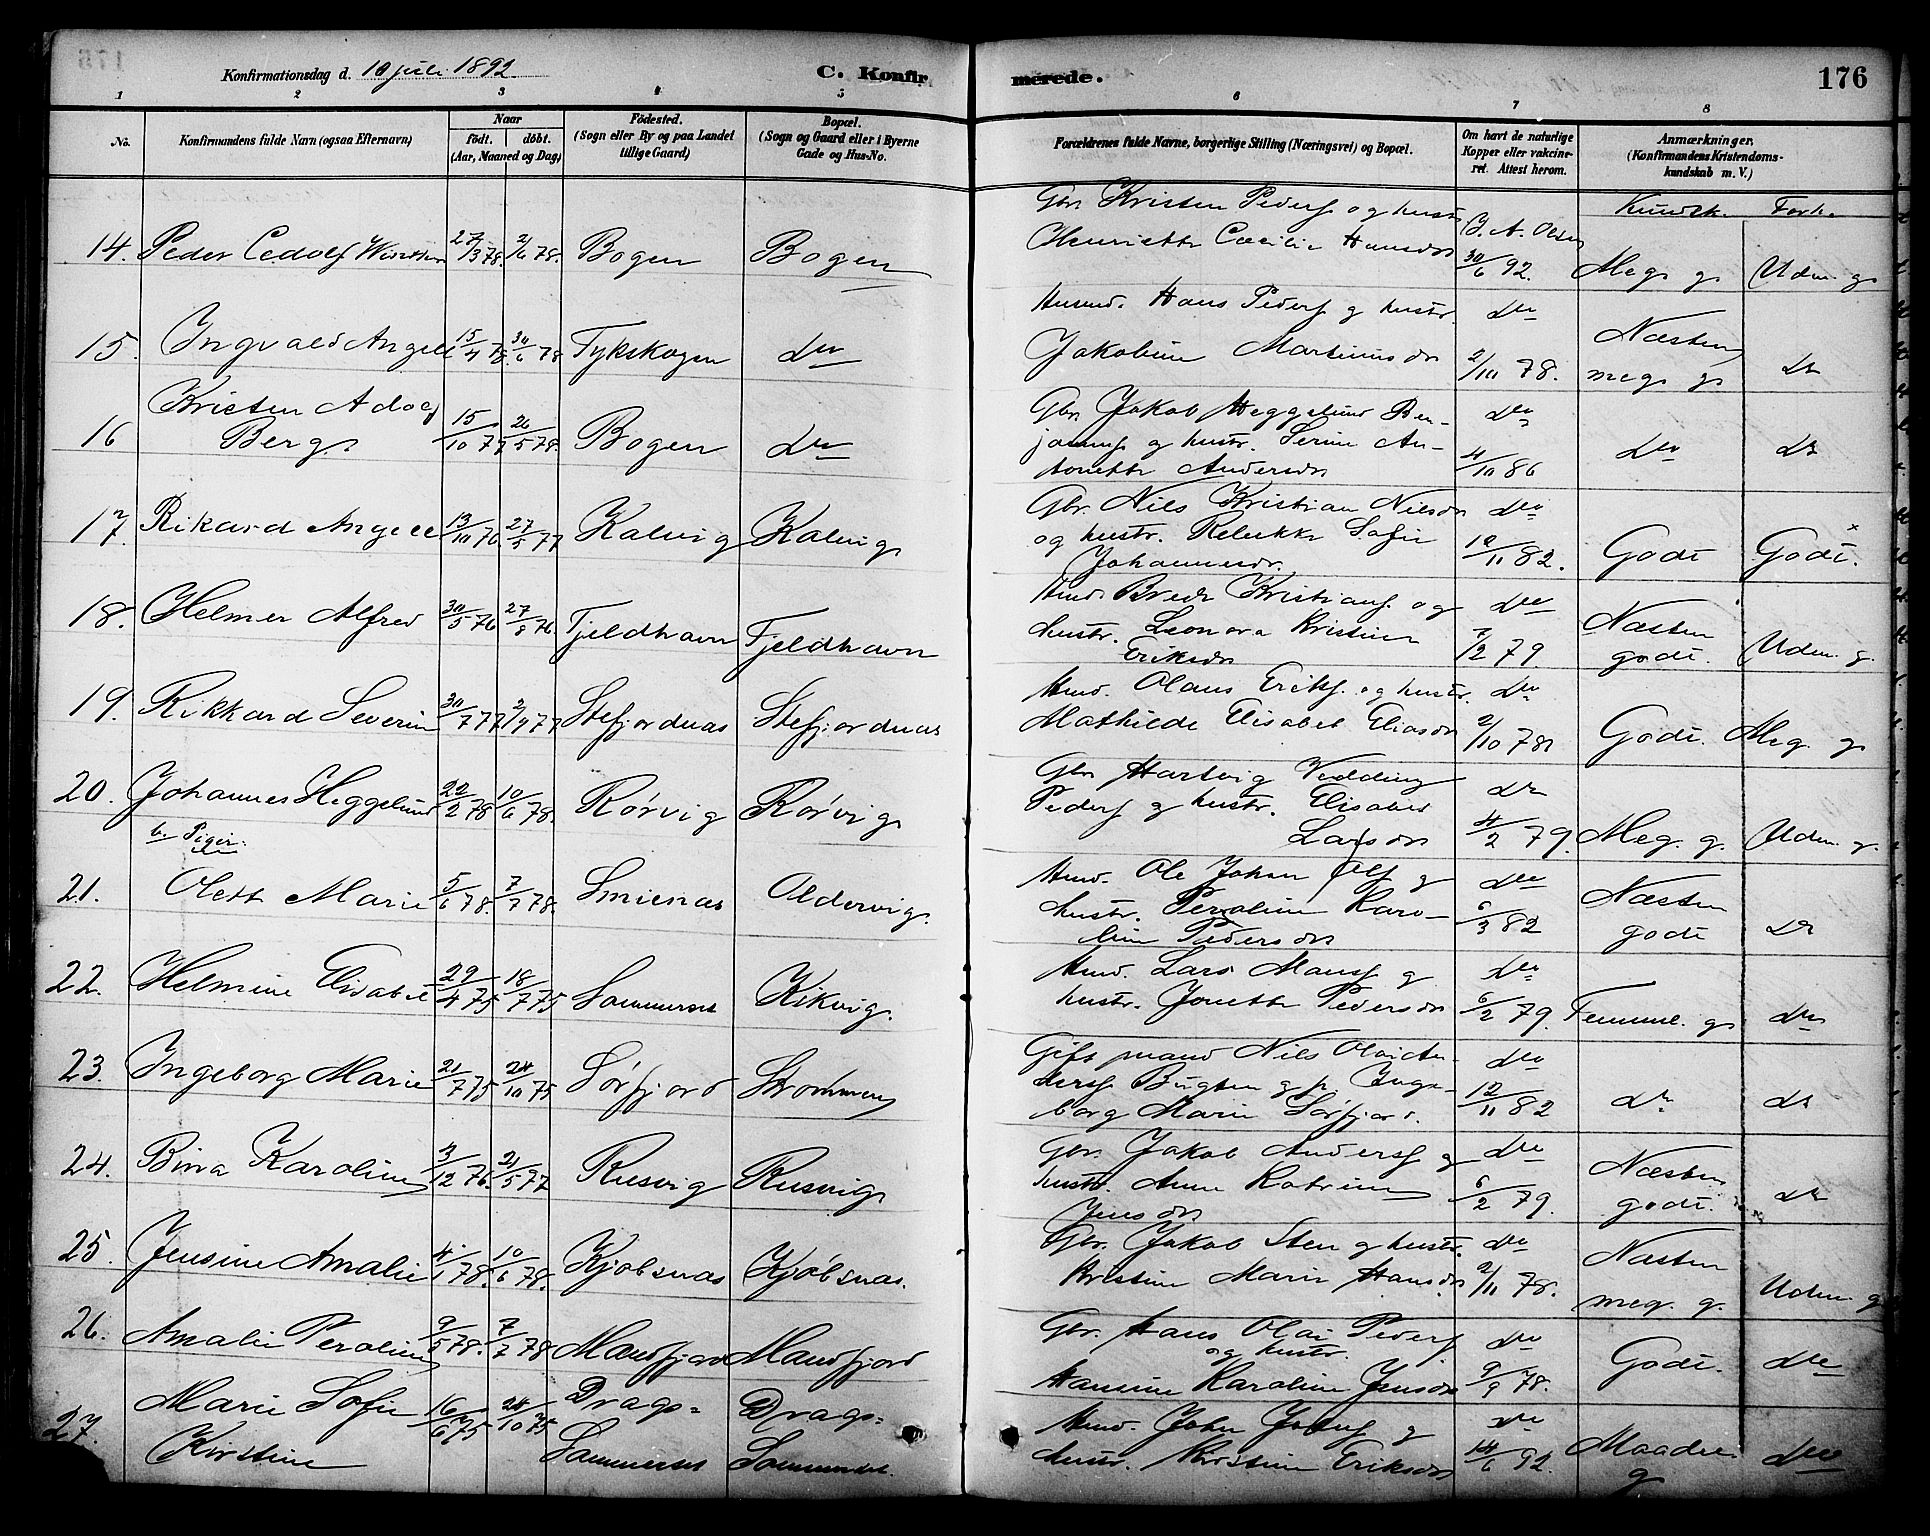 Konfirmationsdag d. 10 juli 1892.
C. Konfirmerede.
176
1 2 3 4 5 6 7 8
No.
Konfirmandens fulde Navn (ogsaa Efternavn)
Naar
födt. döbt.
(Aar, Maaned og Dag)
Födested.
(Sogn eller By og paa Landet
tillige Gaard)
Bopæl.
(Sogn og Gaard eller i Byerne
Gade og Hus-No.
Forældrenes fulde Navne, borgerlige Stilling (Næringsvei) og Bopæl.
Om havt de naturlige
Kopper eller vakcine-
ret. Attest herom.
Anmærkninger.
(Konfirmandens Kristendoms-
kundskab m. V.)
Kundsk. Forh.
14. Peder Cedolf 27/3 78. 2/6 78. Bogen Bogen
Gbr. Kristen Peders og hustr.
Henriette Cæcilie Hansdr
30/6 92. Meg. g. Udm. g.
15. Ingvald Angell 15/4 78. 30/6 78 Tykskogen do
Husmd. Hans Peders g hustr.
Jakobine Martinusdr
do 2/10 78. Næsten
meg. g. do
16 Kristen Adolf
Berg 15/10 77 26/5 78. Bogen do
Gbr. Jakob Heggelund Ben-
jamins g hustr. Serine An-
tonette Andersdr
do 4/10 86 do do
17. Rikard Angell 13/10 76. 27/5 77 Kalvig Kalvig
Gbr. Nils Kristian Nilsen
og hustr. Rebekka Sofie
Johannesdr.
do 10/11 82. Godt Godt.
18. Helmer Alfred 30/5 76 27/8 76. Fjeldhavn Fjeldhavn
Hmd. Bredr Kristians. og
hustr. Leonora Kristine
Eriksdr
do 7/2 79 Næsten
godt. Udm. g.
19. Rikkard Severin 30/7 77 2/9 77 Stefjordnæs Stefjordnæs
Hmd. Olaus Eriks. og hustr.
Mathilde Elisabet Eliasdr
do 2/10 78 Godt. Meg. g
20. Johannes Heggelund 22/2 78 10/6 78. Rørvig Rørvig
Gbr Hartvig Vedding
Peders g hustr. Elisabet
Larsdr
do 4/2 79. Meg. g. Udm. g.
b. Piger.
21. Olett Marie 5/6 78. 7/7 78. Smienæs Aldervig.
Hmd. Ole Johan Ols g
hustr. Peroline Karo-
line Pedersdr
do 6/3 82 Næsten
godt do
22. Helmine Elisabet 29/4 75 18/7 75 Sommerset Kikvig.
Hmd. Lars Mons g
hustr. Jonette Pedersdr
do 6/2 79. Temmel. g. do
23. Ingeborg Marie 21/7 75 24/10 75 Sørfjord Strømmen
Gift mand Nils Olai An-
ders Bugten g p. Inge-
borg Marie Sørfjord.
do 12/11 82 do do
24. Bina Karoline 3/12 76. 21/5 77 Rusvig Rusvig
Gbr. Jakob Anders g
hustr. Anne Katrine
Jensdr
do 6/2 79. Næsten
godt. do
25. Jensine Amalie 4/1 78. 10/6 78. Kjøbsnæs Kjøbsnæs.
Gbr. Jakob Sten g hustr.
Kristine Marie Hansdr
do 2/11 78. Næsten
meg. g. Udm. g
26. Amalie Peroline 9/5 78. 7/7 78 Mandfjord Mandfjord
Gbr. Hans Olai Peders
og hustr.
Hansine Karoline Jensdr
do 9/9 78. Godt. do
27. Marie Sofie
Kirstine 16/6 75 24/10 75 Drags-
Sommerset Drags-
Sommerset.
Hmd. John g
hustr. Kristine Eriksdr
do 14/6 92. Maadel.
g do